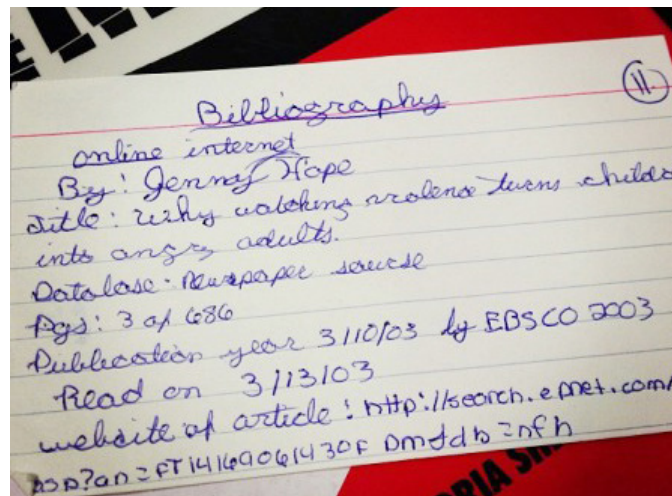 11.
Bibliography
online internet
By: Jenny Hope
Title: Why watching violence turns childs
into angry adults.
Database: Newspaper sourse
Pgs: 3 of 686
Publication year 3/10/03 by EBSCO 2003
Read on 3/13/03
website of article: http://search.epnet.com/